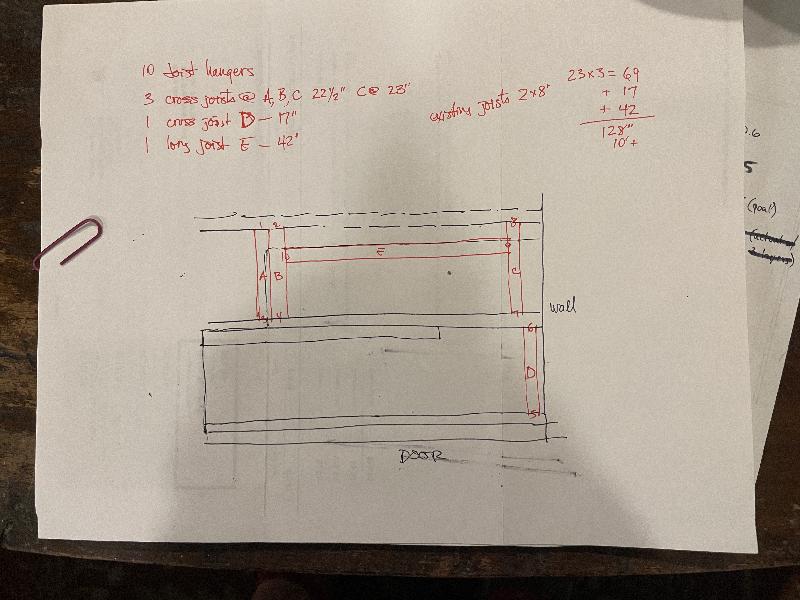 10 Joist hangers
3 cross joists @ A, B, C 22 1/2" C @ 23"
1 cross joist D - 17"
1 long joist E - 42"
existing joists 2x8"
23 x 3 = 69
+ 17
+ 42
128"
10' +
1 2 8
10 E 9
A B C
3 4 7
wall
6
D
5
DOOR
.6
5
(goal)